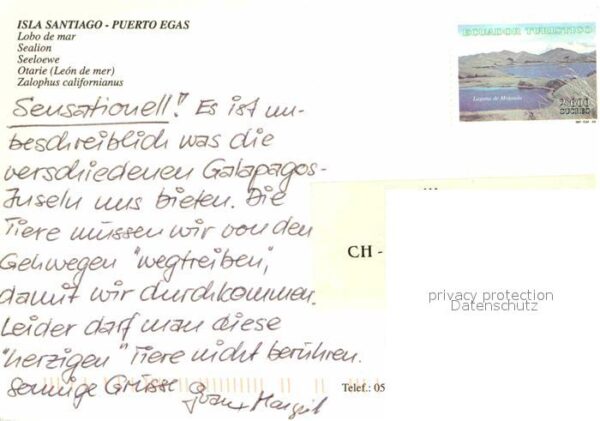 ISLA SANTIAGO - PUERTO EGAS
Lobo de mar
Sealion
Seeloewe
Otarie (León de mer)
Zalophus californianus
Sensationell! Es ist un-
beschreiblich was die
verschiedenen Galapagos-
Inseln uns bieten. Die
Tiere müssen wir von den
Gehwegen "wegtreiben",
damit wir durchkommen.
Leider darf man diese
"herzigen" Tiere nicht berühren.
sonnige Grüsse
ECUADOR TURISTICO
Laguna de Mojanda
SUCRES
CH -
privacy protection
Datenschutz
Telef.: 05